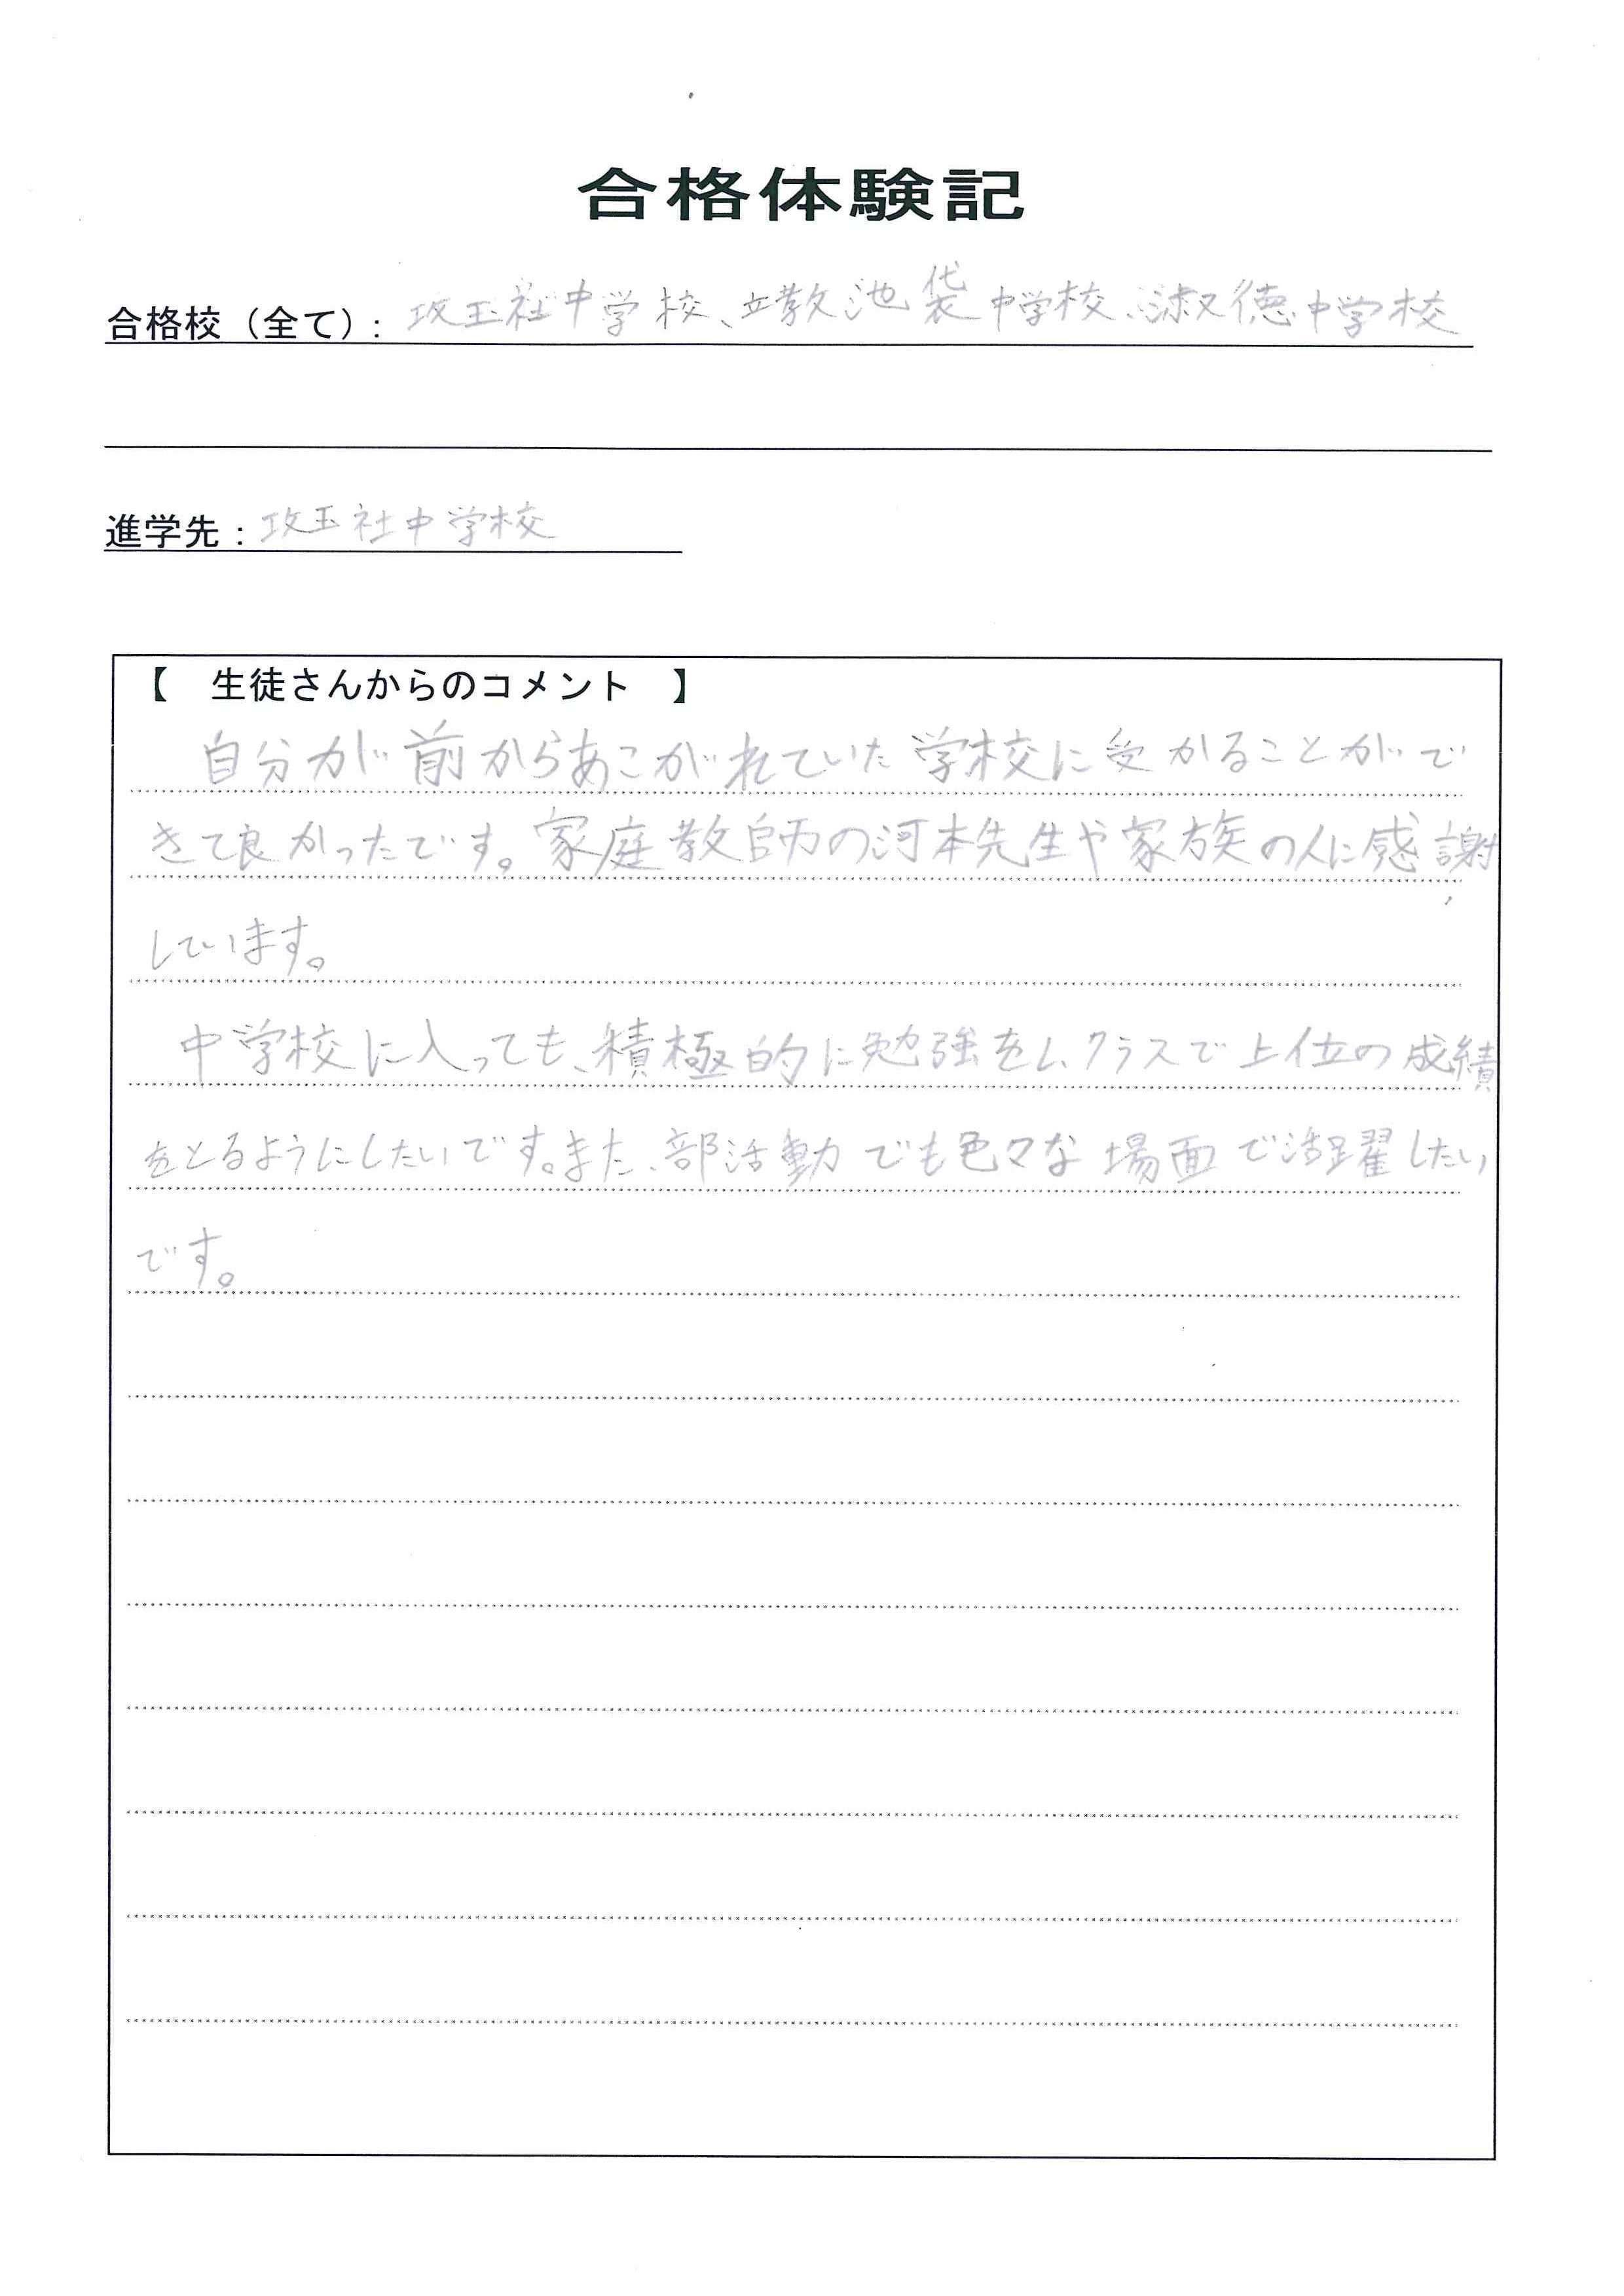 合格体験記
合格校（全て）: 攻玉社中学校、立教池袋中学校、淑徳中学校
進学先：攻玉社中学校
【　生徒さんからのコメント　】
自分が前からあこがれていた学校に受かることがで
きて良かったです。家庭教師の河本先生や家族の人に感謝
しています。
中学校に入っても、積極的に勉強をし、クラスで上位の成績
をとるようにしたいです。また、部活動でも色々な場面で活躍したい
です。